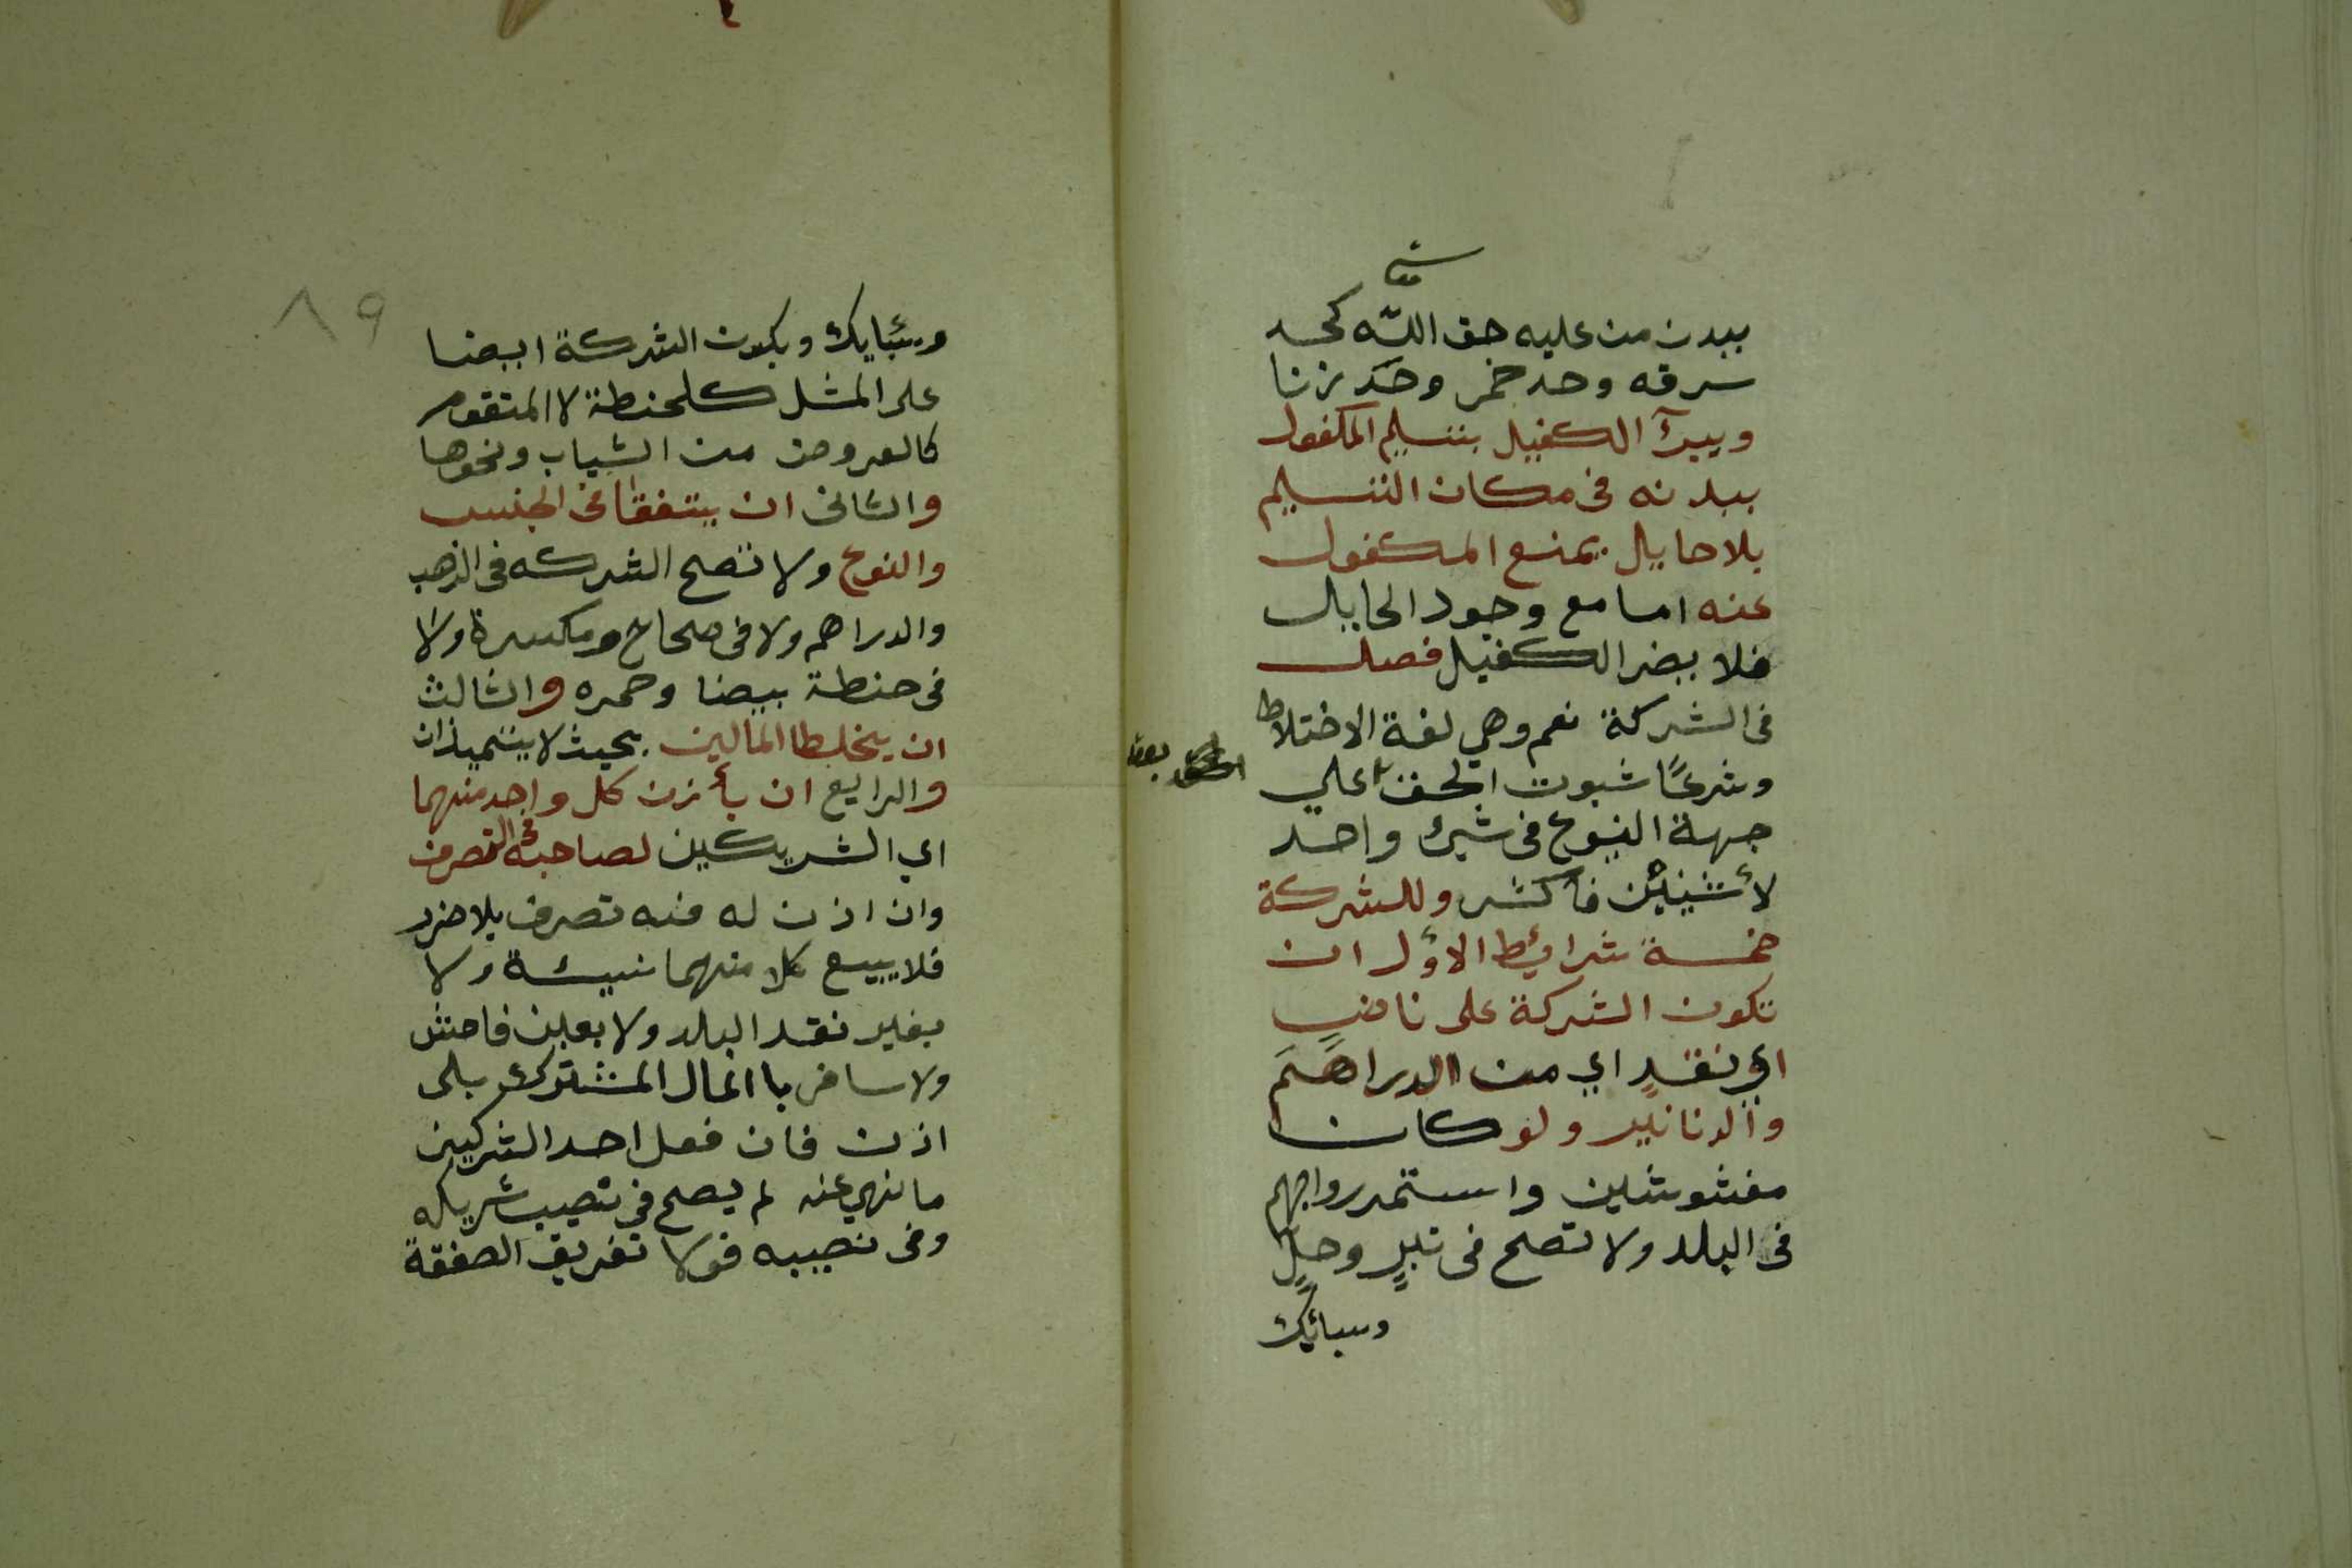 ببدن من عليه حق الله كحد
سرقه وحد خمر وحد زنا
ويبرأ الكفيل بتسليم المكفول
ببدنه فى مكان التسليم
بلا حايل يمنع المكفول
عنه اما مع وجود الحايل
فلا يضر الكفيل فصل
فى الشركة نعم وهي لغة الاختلاط
وشرعًا ثبوت الحق على
جهة الشيوع فى شيئ واحد
لأثنين فأكثر وللشركة
خمسة شرائط الاول ان
تكون الشركة على ناض
اي نقدٍ اي من الدراهم
والدنانير ولو كان
مغشوشين واستمر رواجهم
فى البلد ولا تصح فى تبرٍ وحلٍ
وسبائك
٨٩
وسبايك ويكون الشركة ايضا
على المثل كلحنطة لا المتقوم
كالعروض من الثياب ونحوها
والثانى ان يتفقا فى الجنس
والنوع ولا تصح الشركه فى الذهب
والدراهم ولا فى صحاح ومكسرة ولا
فى حنطة بيضا وحمره والثالث
ان يخلطا المالين بحيث لا يتميذان
والرابع ان يأذن كل واحد منهما
اي الشريكين لصاحبه فى التصرف
وان اذن له فيه تصرف بلا ضرر
فلا يبيع كل منهما نسيئة ولا
بغير نقد البلد ولا بغبن فاحش
ولا سافر باالمال المشترك بلى
اذن فان فعل احد الشركين
ما نهي عنه لم يصح فى نصيب شريكه
وفى نصيبه قولا تفريق الصفقة